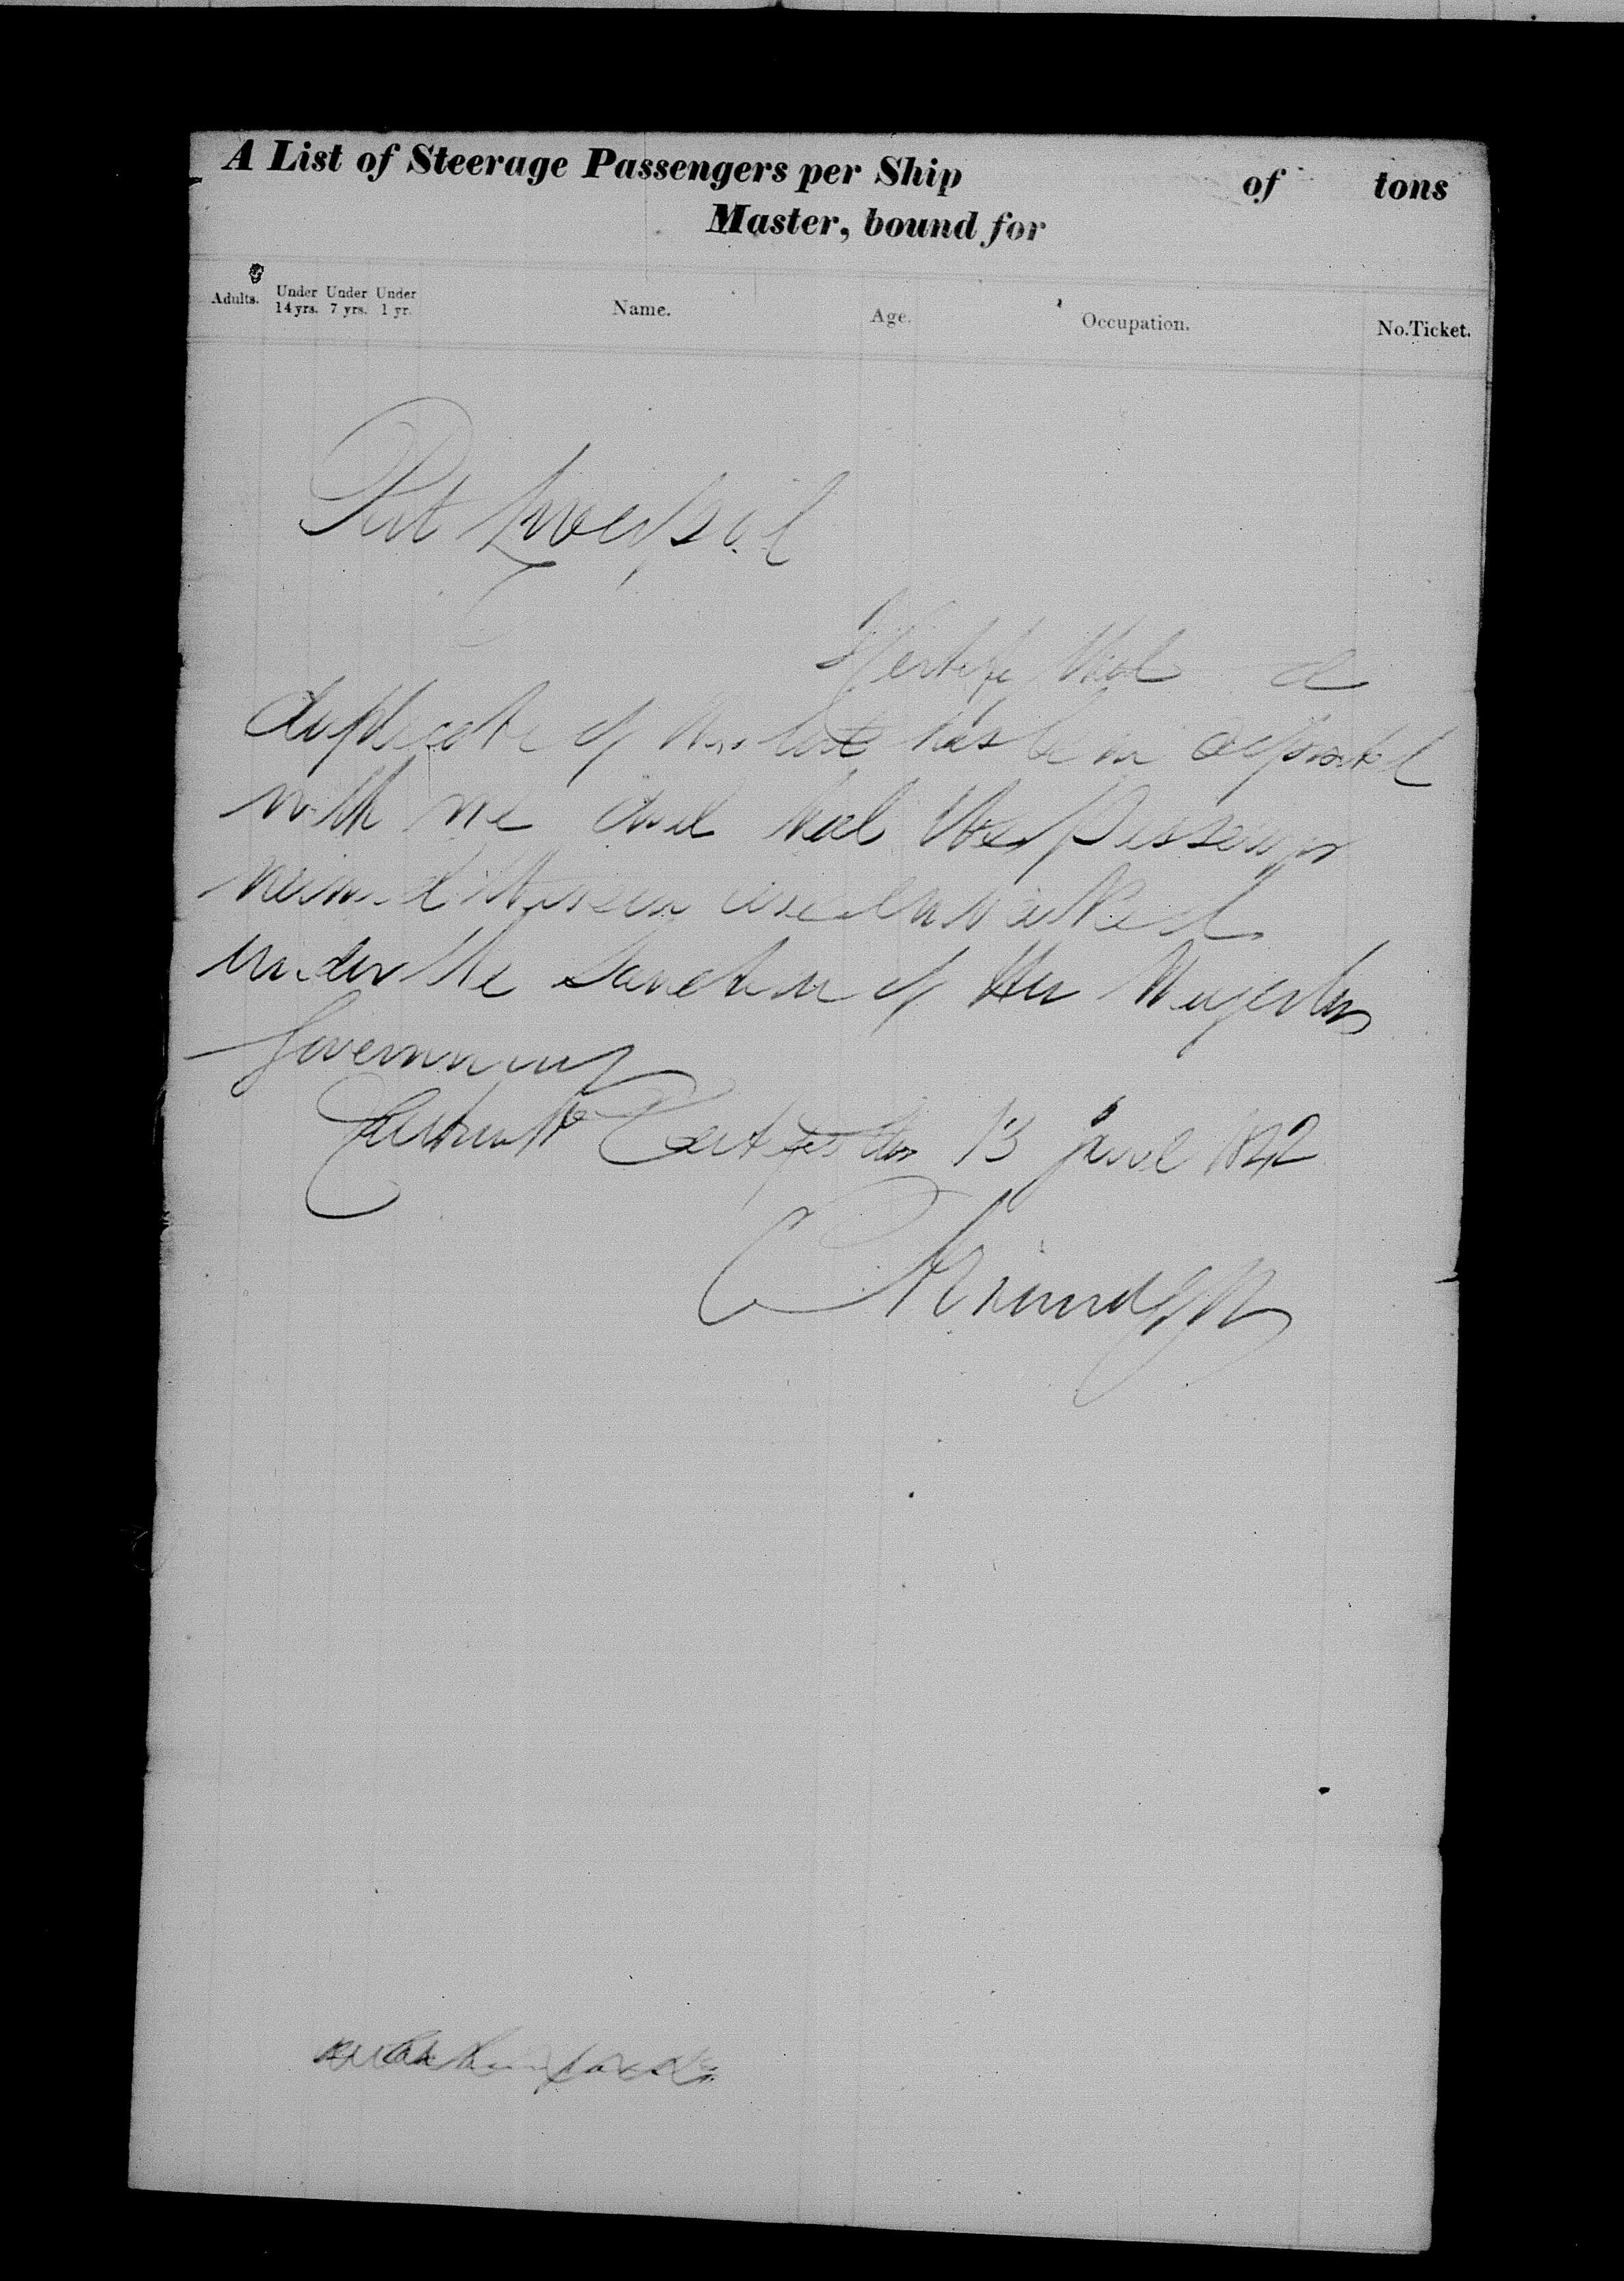 A List of Steerage Passengers per Ship of tons
Master, bound for
Adults. Under 14 yrs. Under 7 yrs. Under 1 yr. Name. Age. Occupation. No. Ticket.
Port Liverpool
I Certify that a
duplicate of this list has been deposited
with me and that the Passengers
named therein are embarked
under the Sanction of Her Majestys
Government
this 13 June 1842